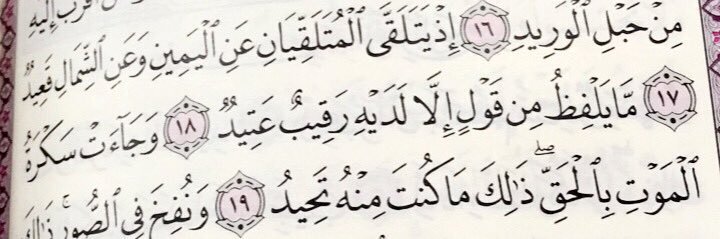 أقرب إليه
مِنْ حَبْلِ ٱلْوَرِيدِ ١٦ إِذْ يَتَلَقَّى ٱلْمُتَلَقِّيَانِ عَنِ ٱلْيَمِينِ وَعَنِ ٱلشِّمَالِ قَعِيدٌ
١٧ مَّا يَلْفِظُ مِن قَوْلٍ إِلَّا لَدَيْهِ رَقِيبٌ عَتِيدٌ ١٨ وَجَآءَتْ سَكْرَةُ
ٱلْمَوْتِ بِٱلْحَقِّ ۖ ذَٰلِكَ مَا كُنتَ مِنْهُ تَحِيدُ ١٩ وَنُفِخَ فِى ٱلصُّورِ ۚ ذَٰلِكَ